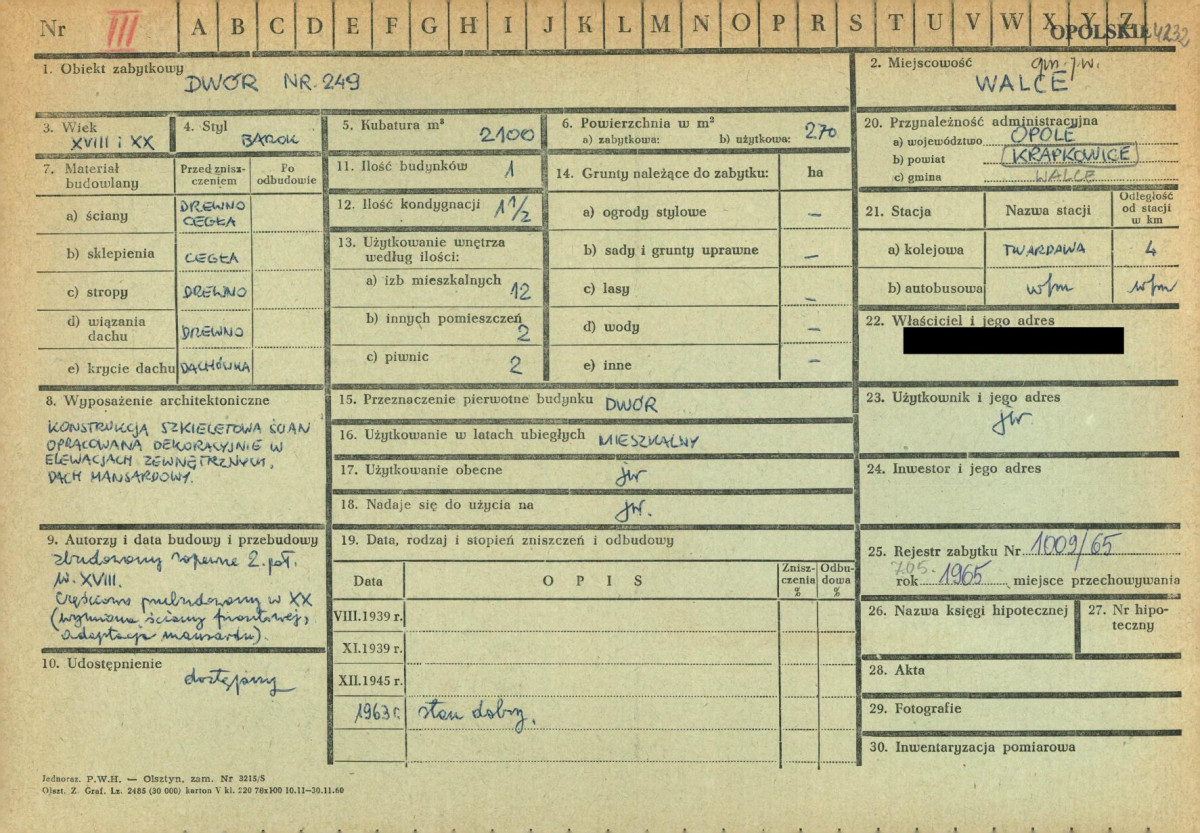 Nr III A B C D E F G H I J K L M N O P R S T U V W X Y Z OPOLSKIE 4232
1. Obiekt zabytkowy DWÓR NR. 249
2. Miejscowość gm. j.w. WALCE
3. Wiek XVIII i XX
4. Styl BAROK
5. Kubatura m³ 2100
6. Powierzchnia w m²
a) zabytkowa: b) użytkowa: 270
20. Przynależność administracyjna
a) województwo OPOLE
b) powiat KRAPKOWICE
c) gmina WALCE
7. Materiał budowlany
Przed zniszczeniem
Po odbudowie
a) ściany DREWNO CEGŁA
b) sklepienia CEGŁA
c) stropy DREWNO
d) wiązania dachu DREWNO
e) krycie dachu DACHÓWKA
11. Ilość budynków 1
12. Ilość kondygnacji 1 1/2
13. Użytkowanie wnętrza
według ilości:
a) izb mieszkalnych 12
b) innych pomieszczeń 2
c) piwnic 2
14. Grunty należące do zabytku: ha
a) ogrody stylowe –
b) sady i grunty uprawne –
c) lasy –
d) wody –
e) inne –
21. Stacja Nazwa stacji Odległość od stacji w km
a) kolejowa TWARDAWA 4
b) autobusowa w/m w/m
22. Właściciel i jego adres
8. Wyposażenie architektoniczne
KONSTRUKCJA SZKIELETOWA ŚCIAN
OPRACOWANA DEKORACYJNIE W
ELEWACJACH ZEWNĘTRZNYCH,
DACH MANSARDOWY.
15. Przeznaczenie pierwotne budynku DWÓR
16. Użytkowanie w latach ubiegłych MIESZKALNY
17. Użytkowanie obecne jw
18. Nadaje się do użycia na jw.
23. Użytkownik i jego adres
jw.
24. Inwestor i jego adres
9. Autorzy i data budowy i przebudowy
zbudowany zapewne 2. poł.
w. XVIII.
Częściowo przebudowany w XX
(wymiana ściany frontowej,
adaptacja mansardu).
10. Udostępnienie
dostępny
19. Data, rodzaj i stopień zniszczeń i odbudowy
Data OPIS Zniszczenia % Odbudowa %
VIII.1939 r.
XI.1939 r.
XII.1945 r.
1963 r. stan dobry.
25. Rejestr zabytku Nr 1009/65
705.
rok 1965 miejsce przechowywania
26. Nazwa księgi hipotecznej
27. Nr hipoteczny
28. Akta
29. Fotografie
30. Inwentaryzacja pomiarowa
Jednoraz. P.W.H. — Olsztyn, zam. Nr 3215/S
Olszt. Z. Graf. Lz. 2485 (30 000) karton V kl. 220 76x100 10.11—30.11.60